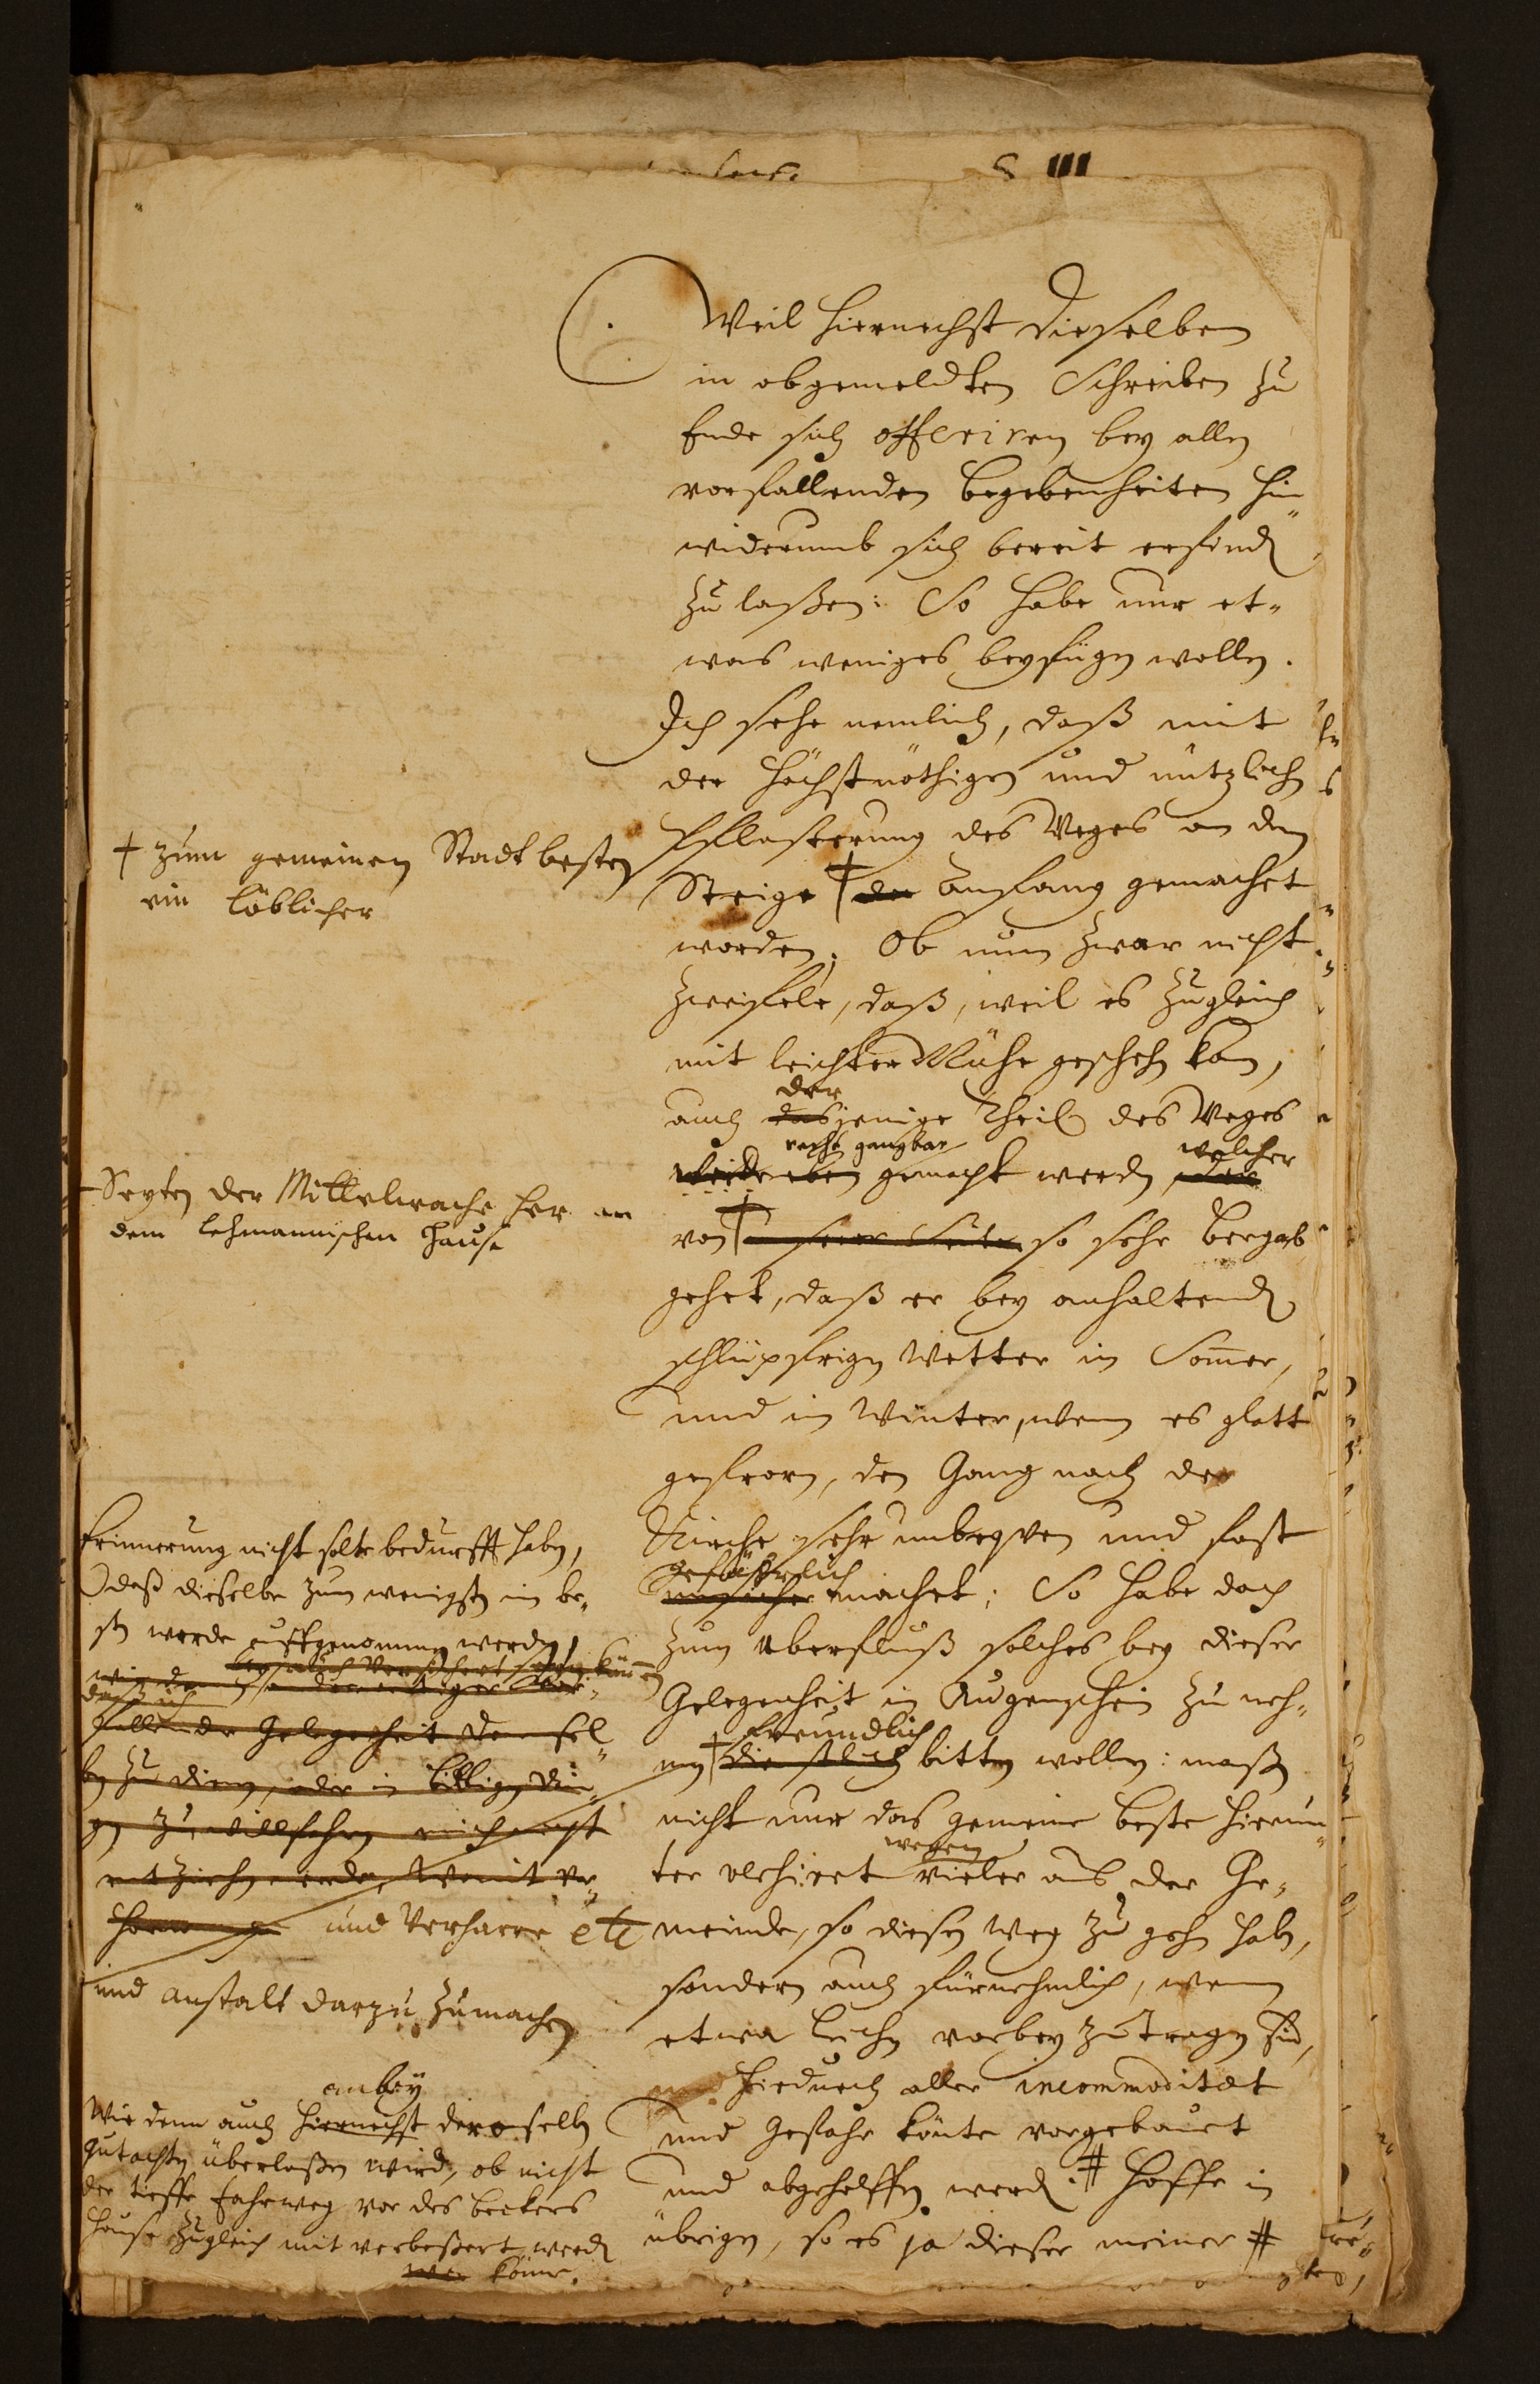 Weil hiernechst dieselben
in obgemeldten Schreiben zu
Ende sich offeriren bey allen
vorfallenden begebenheiten hin„
widerumb sich bereit erfinden
zu laßen: So habe nur et„
was weniges beyfügen wollen.
Ich sehe nemlich, daß mit
der höchstnöthigen und nützlichen
Pflasterung des Weges an den
Steige † der Anfang gemachet
worden. Ob nun zwar nicht
zweifele, daß, weil es zugleich
mit leichter Mühe geschehen kan,
der
auch dasjenige Theil des Weges
recht gangbar welcher
gemacht werden
von † seiner Seite so sehr bergab
gehet, daß er bey anhaltenden
schlüpfrigen Wetter im Sommer,
und im Winter, wenn es glatt
gefroren, den Gang nach der
Kirche sehr unbeqvem und fast
gefährlich
unsicher machet; So habe doch
zum überfluß solches bey dieser
Gelegenheit in Augenschein zu neh„
freundlich
men † bitten wollen: maßen
nicht nur das gemeine beste hierun„
wegen
ter versiret vieler aus der Ge„
meinde, so diesen Weg zu gehen haben,
sondern auch fürnehmlich, wenn
etwa Leichen vorbey zu tragen sind,
hiedurch aller incommoditæt
und Gefahr könte vorgebauet
und abgeholffen werden. # Hoffe im
übrigen, so es ja dieser meiner #
† zum gemeinen Stadt besten
ein löblicher
Seyten der Mittelwache her an
dem Lehmannischen Hause
Erinnerung nicht solte bedurfft haben,
daß dieselbe zum wenigsten im be„
sten werde auffgenommen werden,
versichert seyn können
daß ich
Gelegenheit denensel„
ben zu dienen, oder in billigen Din„
gen zu willfahren mich nicht
entziehen werde, Womit ver„
und Verharre etc
und anstalt darzu zumachen
anbey
Wie denn auch hiernechst deroselben
gutachten überlaßen wird, ob nicht
der tieffe Fahrweg vor des beckers
Hause zugleich mit verbeßert werden
könne.